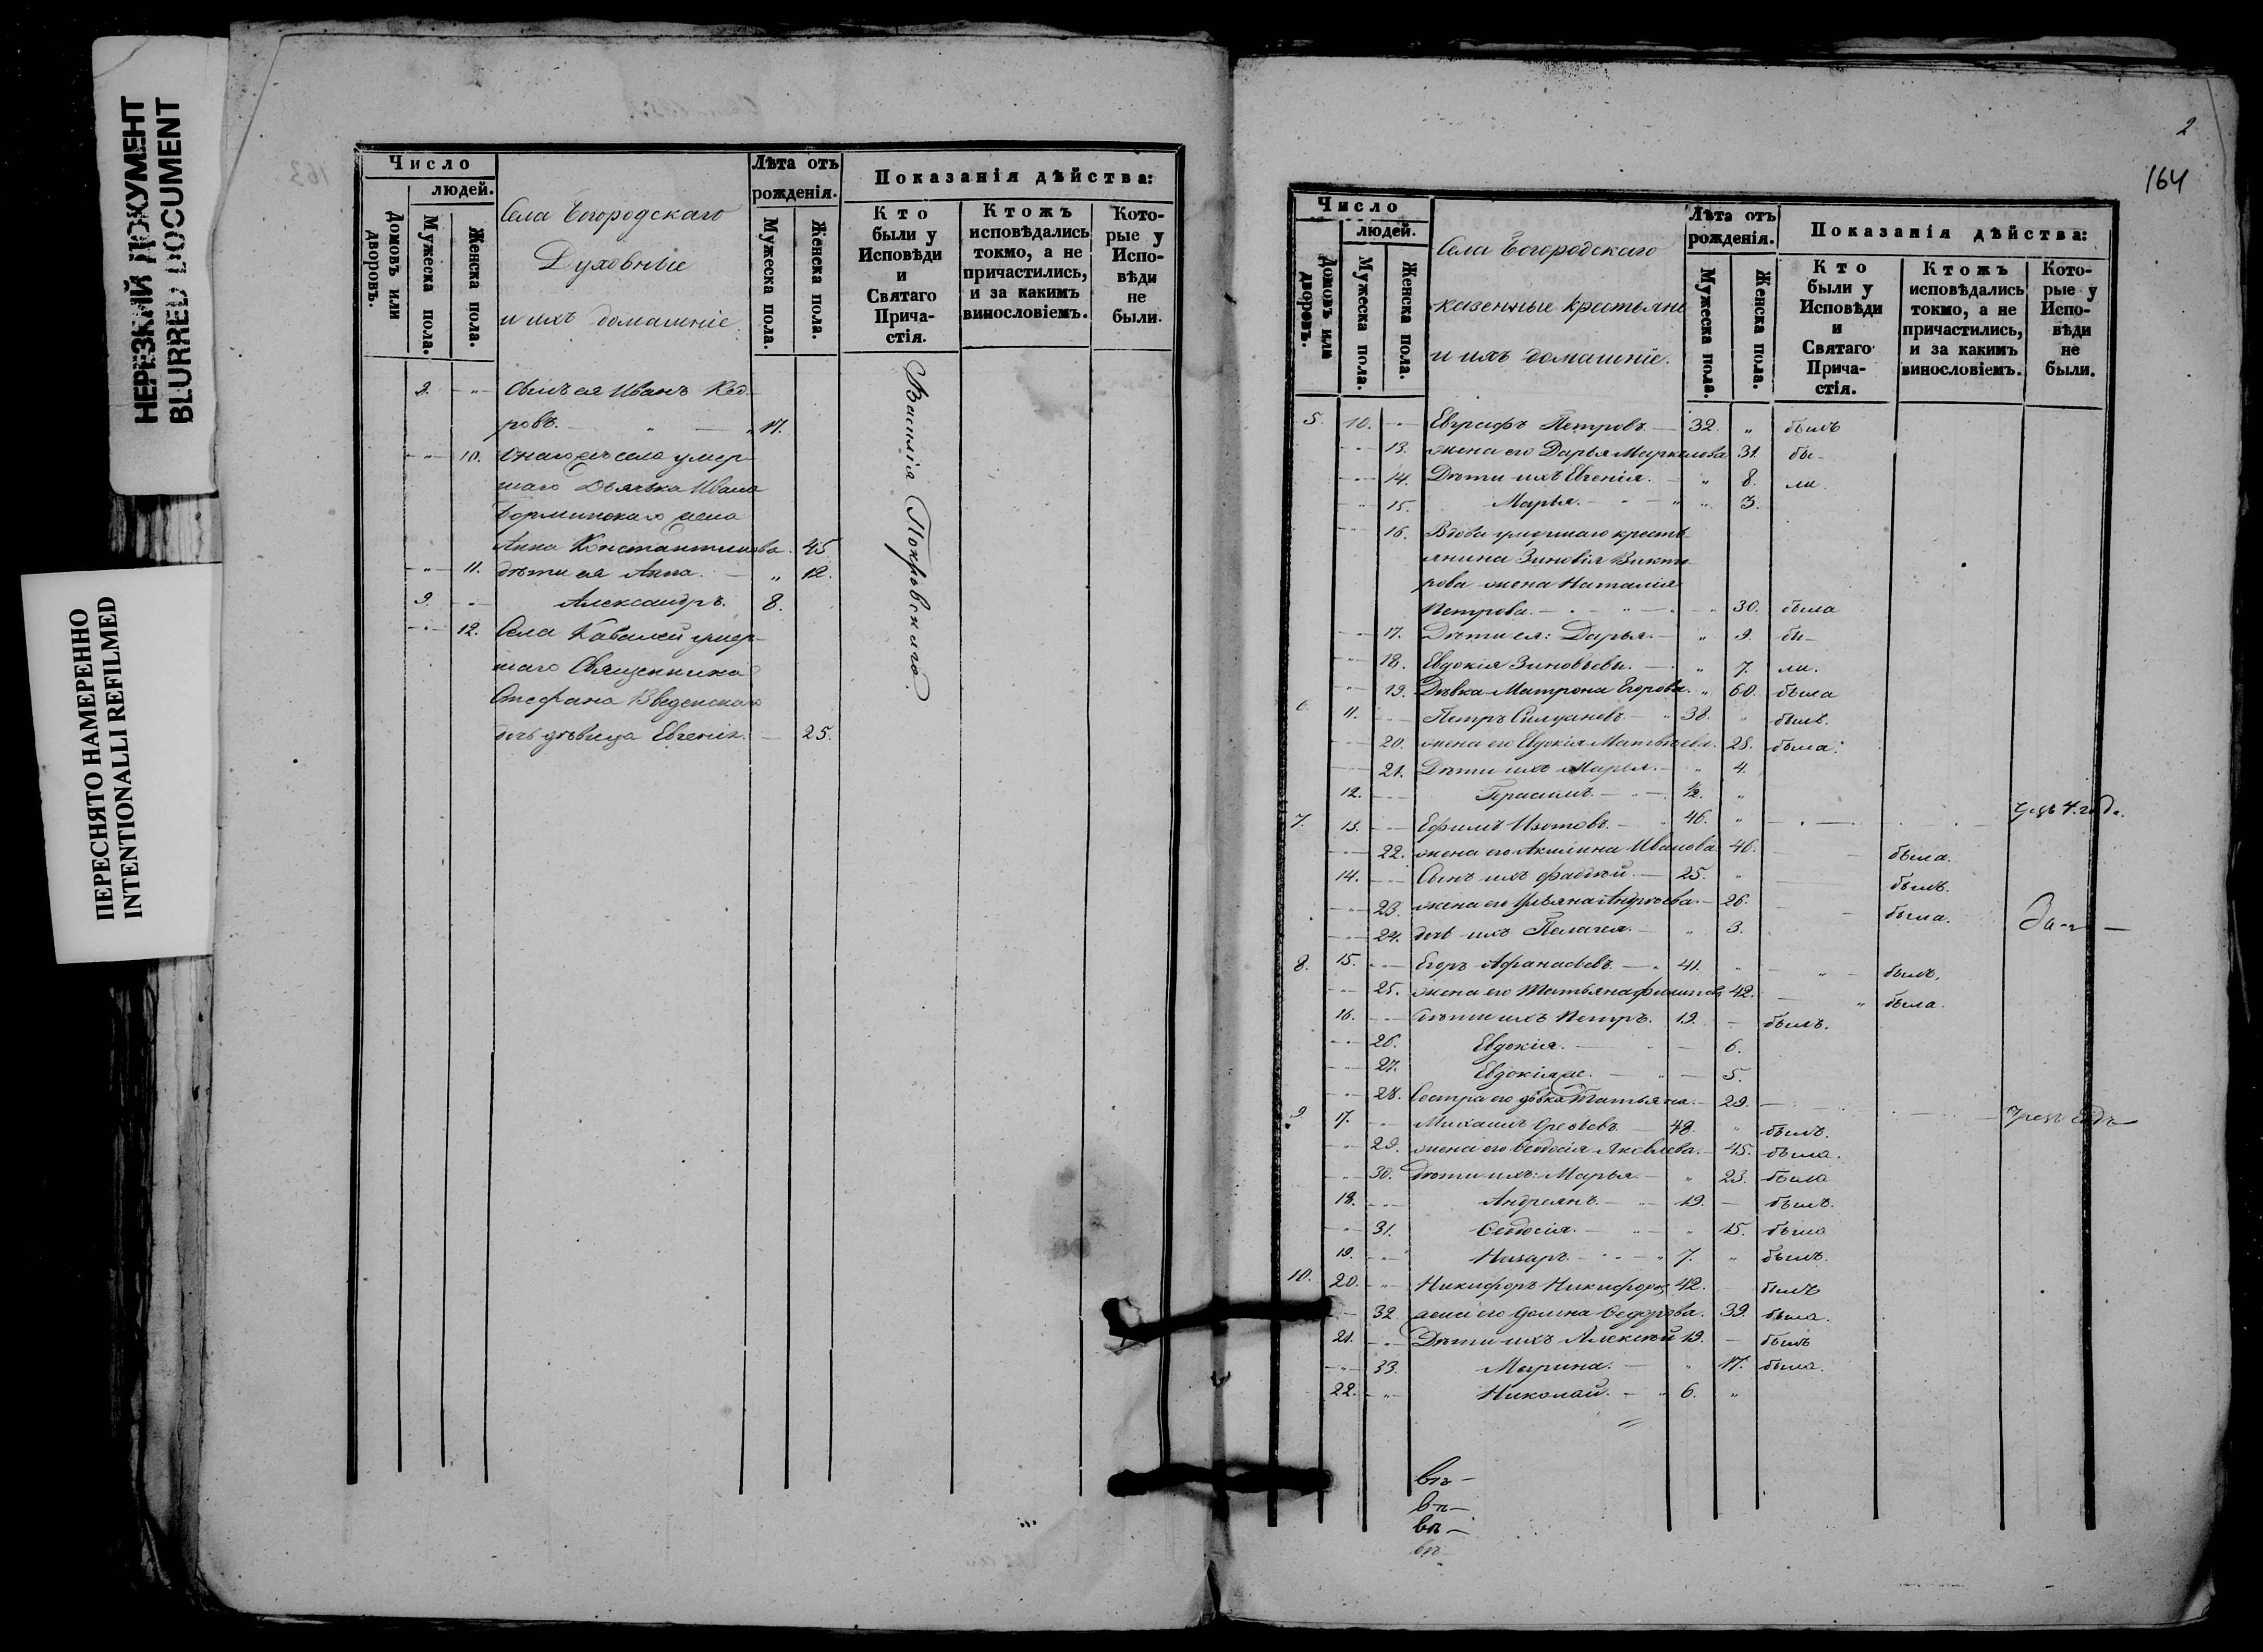 НЕРЕЗКИЙ ДОКУМЕНТ
BLURRED DOCUMENT
ПЕРЕСНЯТО НАМЕРЕННО
INTENTIONALLI REFILMED
Число
людей.
Домовъ или дворовъ.
Мужеска пола.
Женска пола.
Села Богородскаго
Духовные
и ихъ домашніе.
Лѣта отъ рожденія.
Мужеска пола.
Женска пола.
Показанія дѣйства:
Кто были у Исповѣди и Святаго Прича-стія.
Ктожъ исповѣдались токмо, а не причастились, и за какимъ винословіемъ.
Кото-рые у Испо-вѣди не были.
Сынъ ея Иванъ Кед-
ровъ. 17.
10. Онагожъ села умер-
шаго Дьячка Ивана
жена
Анна Константинова. 45
11. дѣти ея Анна. 12.
9. Александръ. 8.
12. Села умер-
шаго Священника
Стефана Введенскаго
дочь дѣвица Евгенія. 25.
Василія Покровскаго
2
164
Число
людей.
Домовъ или дворовъ.
Мужеска пола.
Женска пола.
Села Богородскаго
казенные крестьяне
и ихъ домашніе.
Лѣта отъ рожденія.
Мужеска пола.
Женска пола.
Показанія дѣйства:
Кто были у Исповѣди и Святаго Прича-стія.
Ктожъ исповѣдались токмо, а не причастились, и за какимъ винословіемъ.
Кото-рые у Испо-вѣди не были.
5. 10. Евграфъ Петровъ 32 былъ
13. жена его Дарья Маркелова 31. бы-
14. Дѣти ихъ Евгенія. 8. ли.
15. Марья. 3.
16. Вдова умершаго кресть-
янина Зиновія Викто-
рова жена Наталія
Петрова. 30. была
17. Дѣти ея: Дарья. 9. бы-
18. Евдокія Зиновьевы. 7. ли.
19. Дѣвка Матрона Егорова. 60. была
6. 11. Петръ Силуановъ 38. былъ.
20. жена его Евдокія Матвѣева. 28. была.
21. Дѣти ихъ Марья. 4.
12. Герасимъ. 1/2.
7. 13. Ефимъ Изотовъ. 46.
22. жена его Акилина Иванова 46. была.
14. Сынъ ихъ Фаддѣй. 25. былъ.
23. жена его Ульяна Андреева. 26. была.
24. дочь ихъ Пелагея. 3.
8. 15. Егоръ Афанасьевъ. 41. былъ.
25. жена его Татьяна 42. была.
16. Дѣти ихъ Петръ. 19. былъ.
26. Евдокія. 6.
27. Евдокія же. 5.
28. Сестра его дѣвка Татьяна. 29.
9 17. Михаилъ 48. былъ.
29. жена его Ѳеодосія Яковлева. 45. была.
30. Дѣти ихъ: Марья 23. была
18. Андреянъ. 19. былъ.
31. Ѳеодосія. 15. была
19. Назаръ 7. былъ.
10. 20. Никифоръ Никифоровъ 42. былъ
32. жена его Ѳедорова. 39. была.
21. Дѣти ихъ Алексѣй 19. былъ
33. Марина. 17. была.
22. Николай. 6.